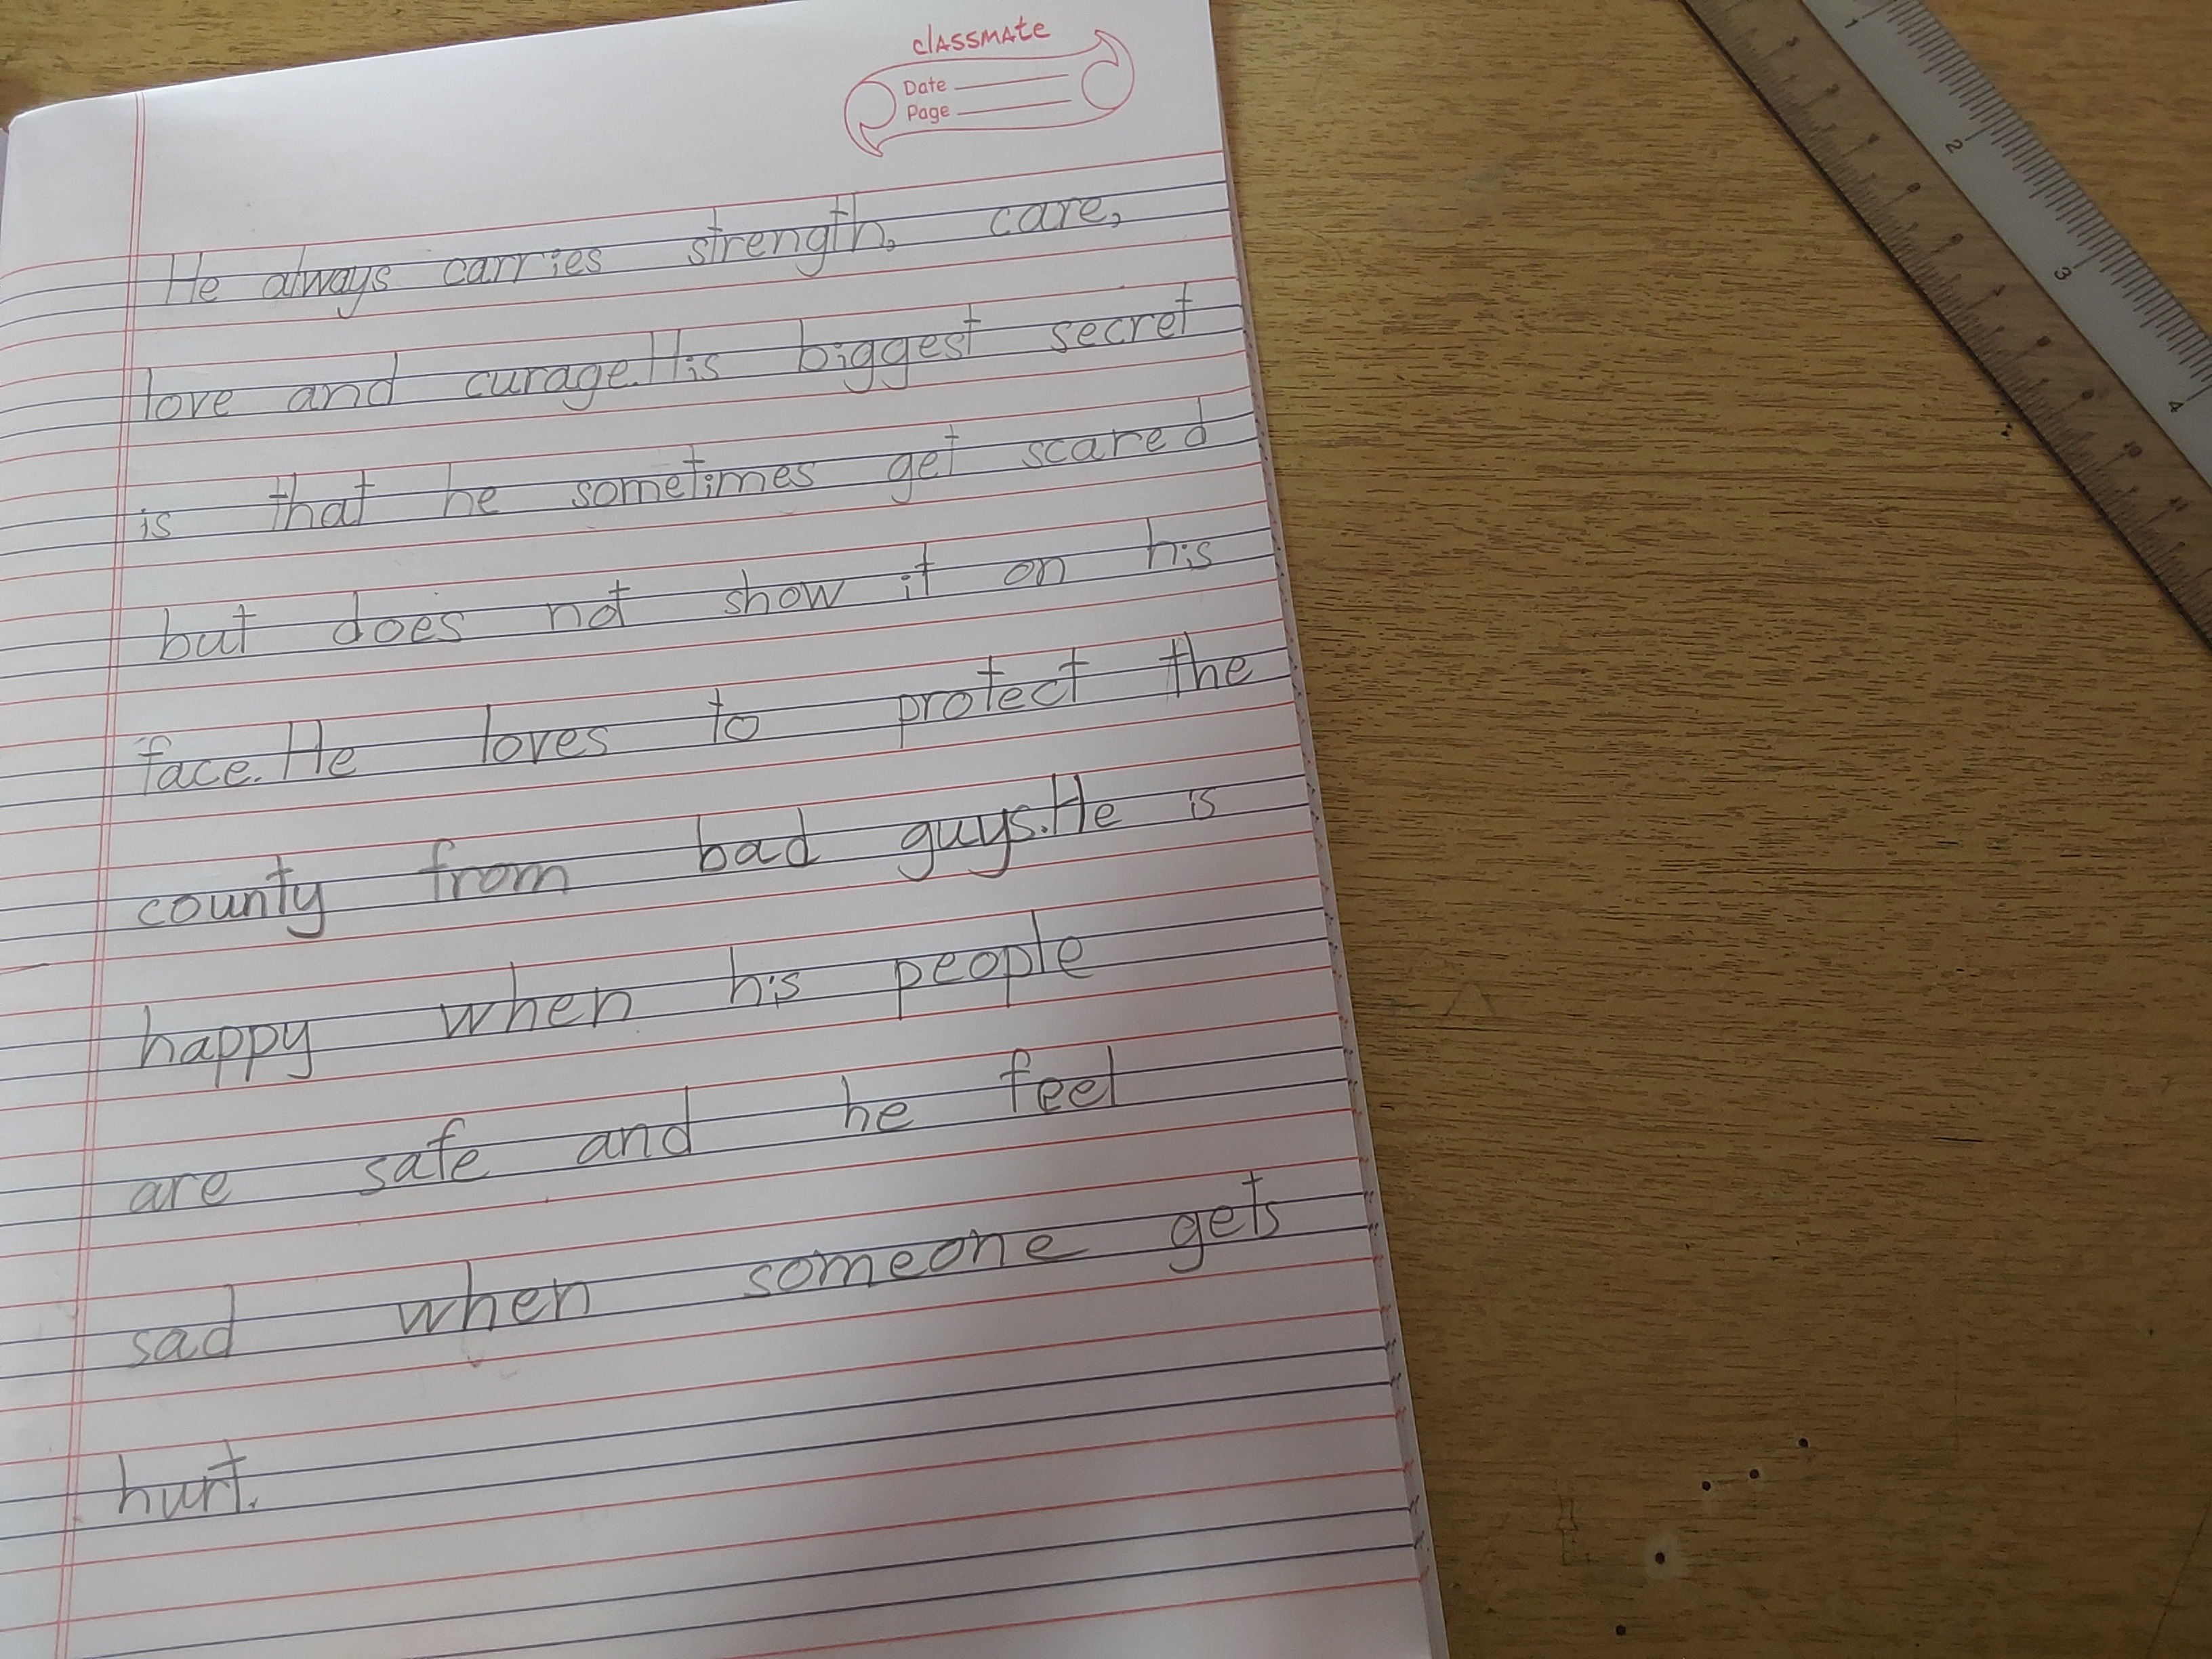 classmate
Date
Page
He always carries strength, care,
love and curage.His biggest secret
is that he sometimes get scared
but does not show it on his
face.He loves to protect the
county from bad guys.He is
happy when his people
are safe and he feel
sad when someone gets
hurt.
1
2
3
4